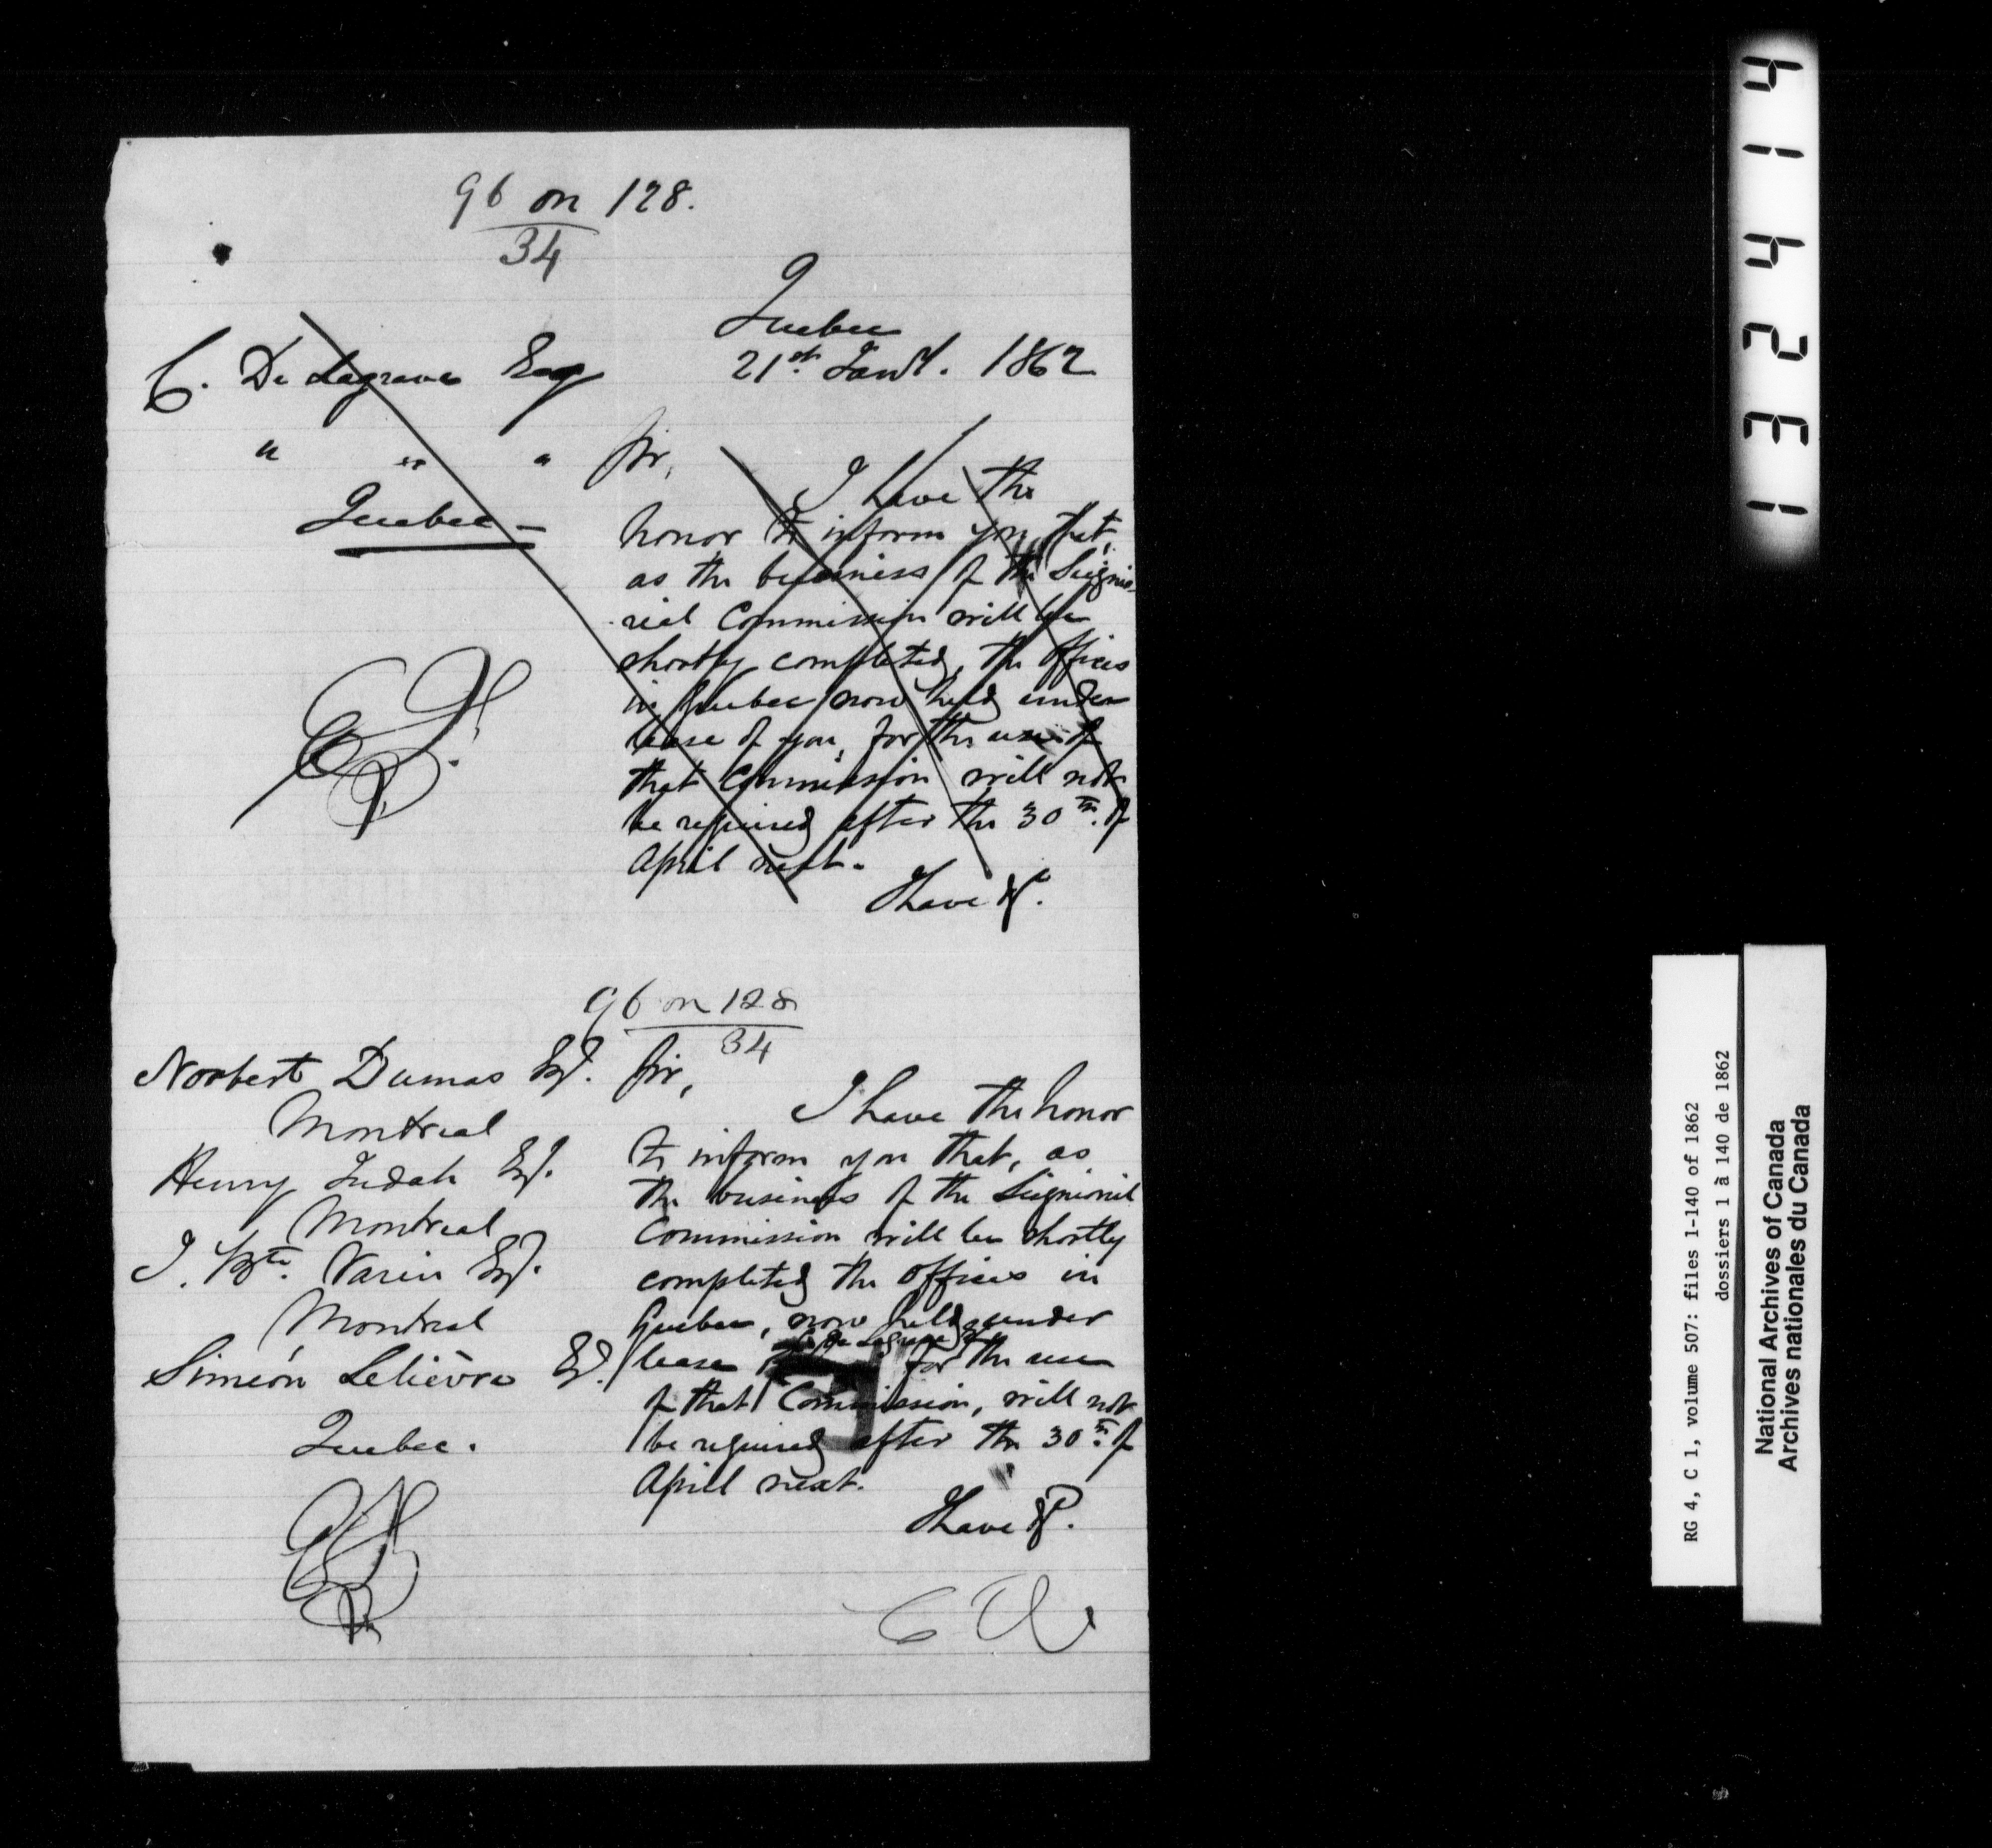 96 on 128.
34
Quebec
C. De Lagrave Esq
21st. Jany. 1862
" " "
Sir,
Quebec -
I have the
honor to inform you that,
as the business of the Seignio-
rial Commission will be
shortly completed, the offices
in Quebec now held under
lease of you, for the use of
that Commission will not
be required after the 30th. of
April next.
I have &c.
96 on 128
34
Norbert Dumas Esq.
Sir,
Montreal
I have the honor
Henry Judah Esq.
to inform you that, as
Montreal
the business of the Seignioral
Commission will be shortly
J. Bte. Varin Esq.
completed the offices in
Montreal
Quebec, now held under
Siméon Lelièvre Esq.
De Lagrave
lease for the use
of that Commission, will not
Quebec.
be required after the 30th. of
April next.
I have &c.
132414
RG 4, C 1, volume 507: files 1-140 of 1862
dossiers 1 à 140 de 1862
National Archives of Canada
Archives nationales du Canada